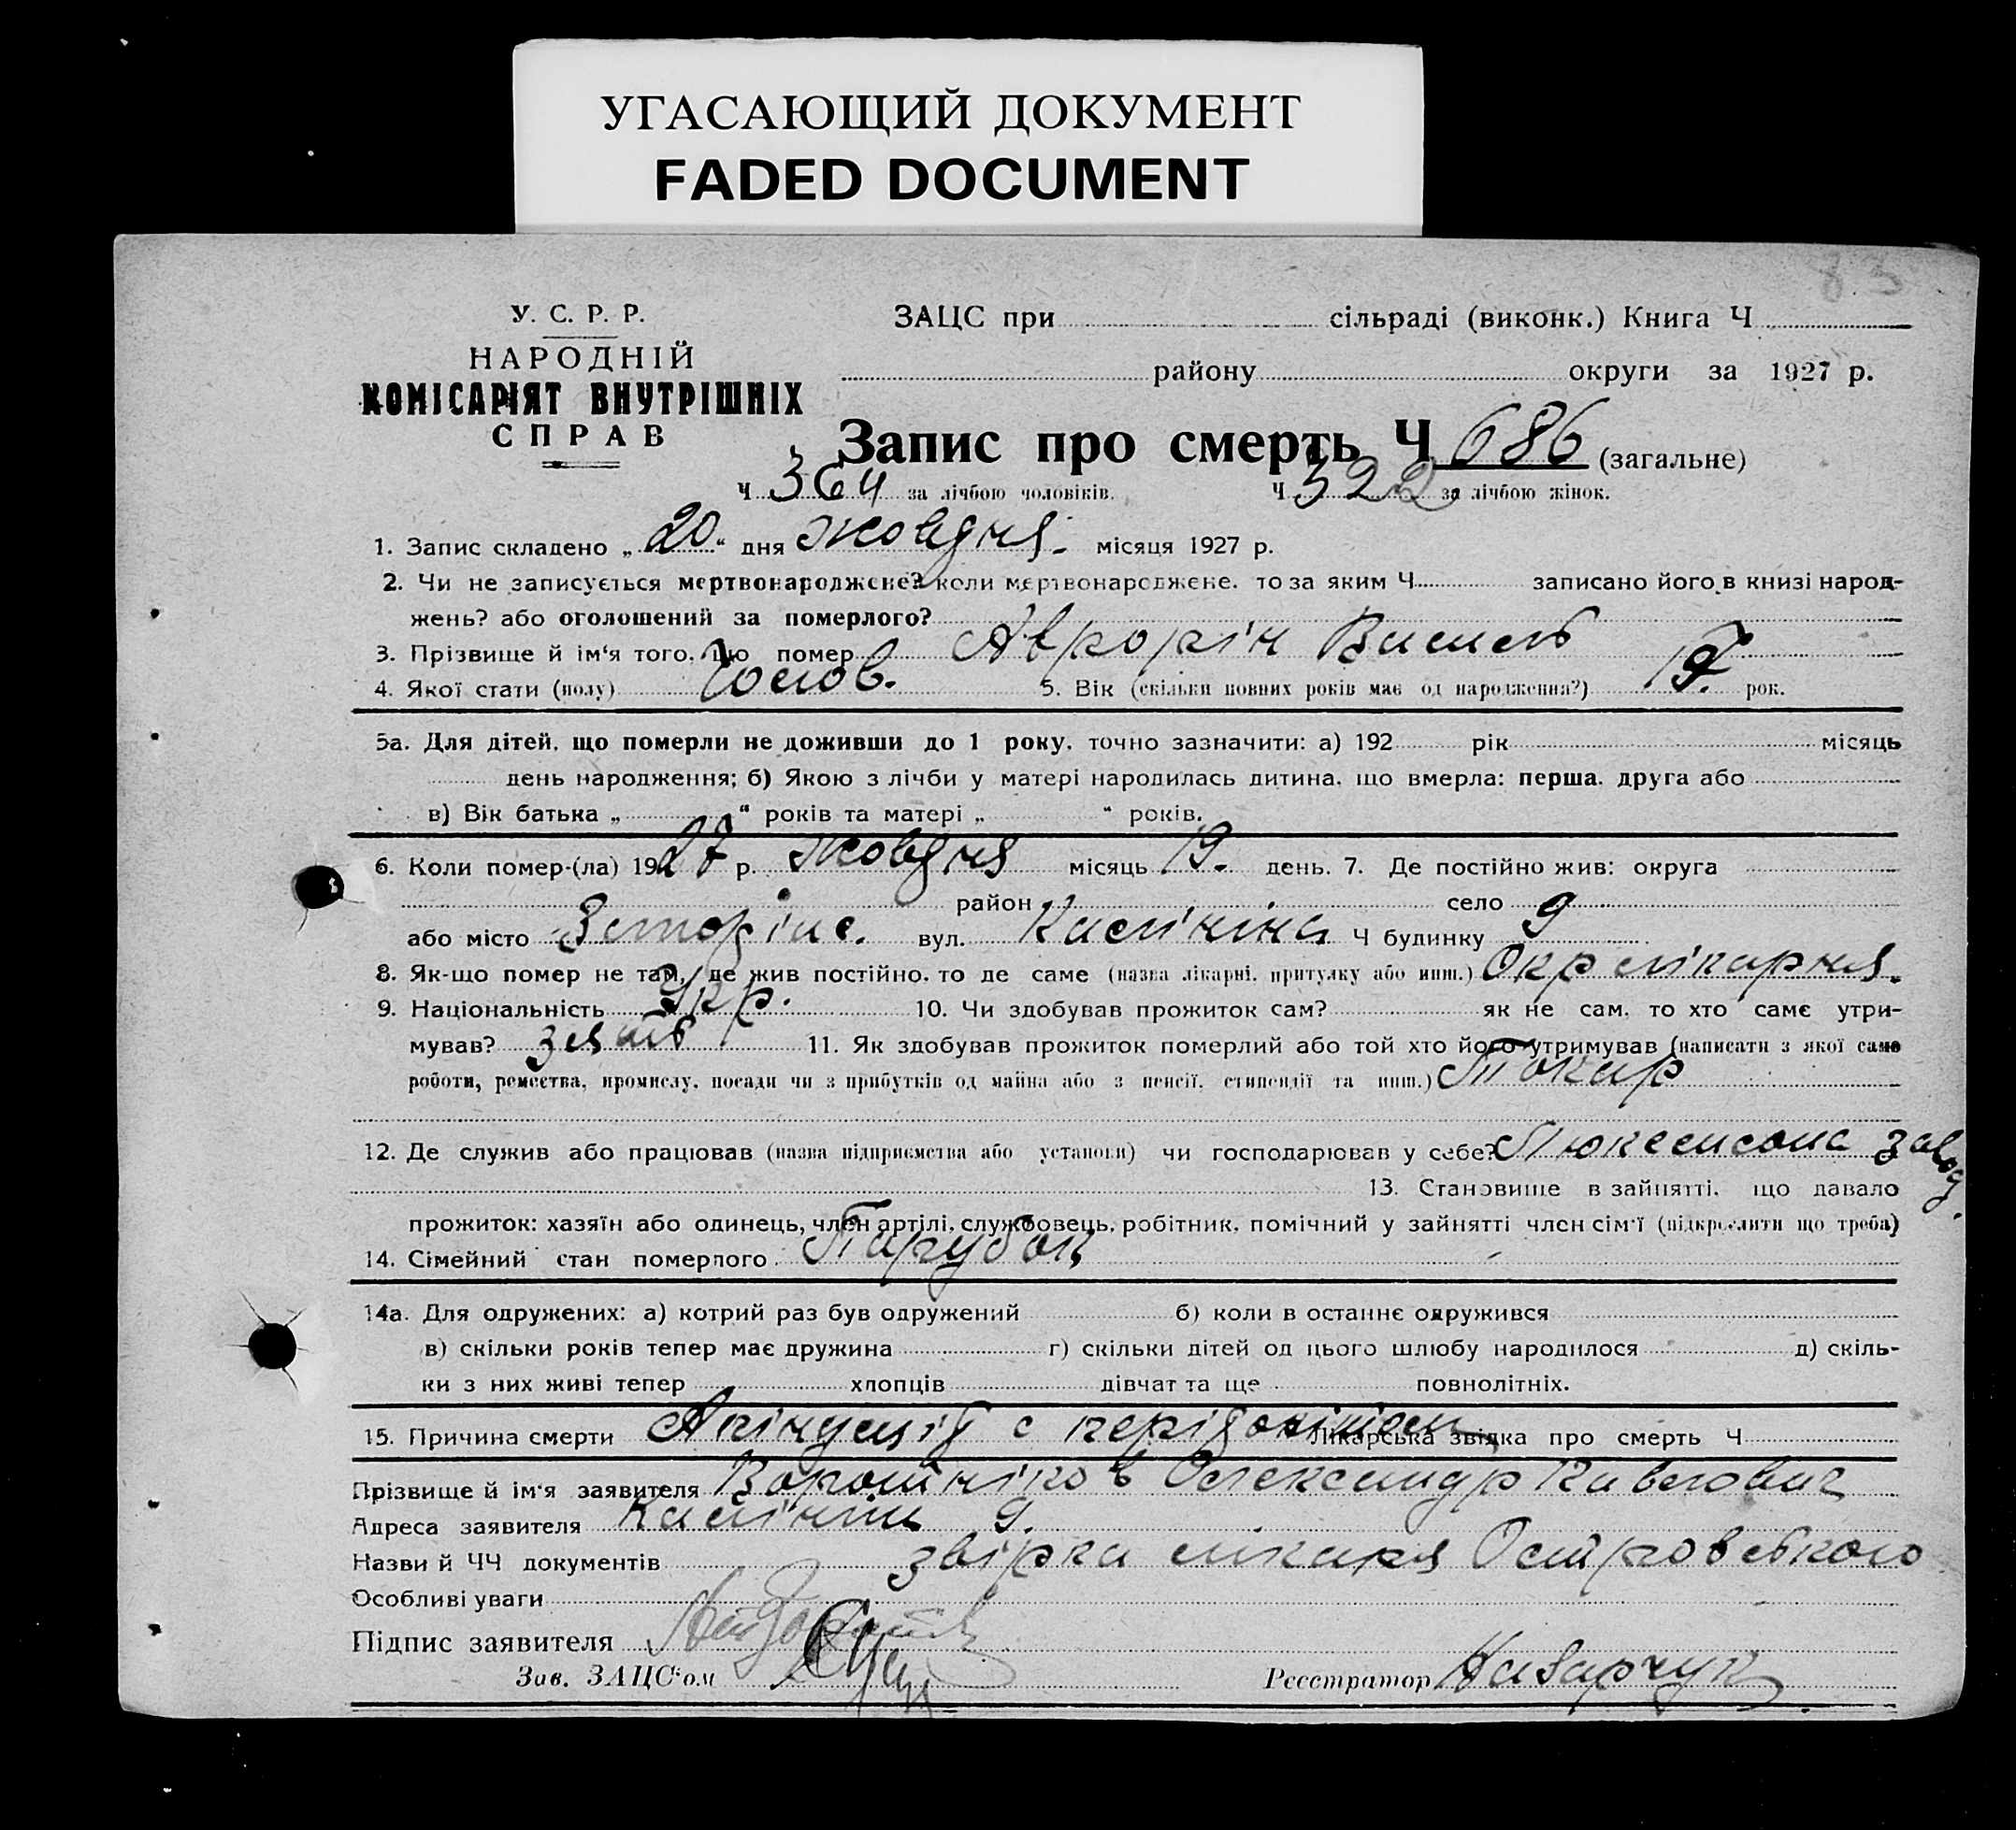 УГАСАЮЩИЙ ДОКУМЕНТ
FADED DOCUMENT
83
У. С. Р. Р.
НАРОДНІЙ
КОМІСАРІЯТ ВНУТРІШНІХ
СПРАВ
ЗАЦС при сільраді (виконк.) Книга Ч
району округи за 1927 р.
Запис про смерть Ч 686 (загальне)
Ч 364 за лічбою чоловіків. Ч 322 за лічбою жінок.
1. Запис складено „20" дня жовтня місяця 1927 р.
2. Чи не записується мертвонароджене? коли мертвонароджене, то за яким Ч записано його в книзі народ-
жень? або оголошений за померлого?
3. Прізвище й ім'я того, що помер Аврорін
4. Якої стати (полу) Чолов. 5. Вік (скільки повних років має од народження?) рок.
5а. Для дітей, що померли не доживши до 1 року, точно зазначити: а) 192 рік місяць
день народження; б) Якою з лічби у матері народилась дитина, що вмерла: перша, друга або
в) Вік батька „ " років та матері „ " років.
6. Коли помер-(ла) 1927 р. жовтня місяць 19. день. 7. Де постійно жив: округа
район село
або місто вул. Калініна Ч будинку 9
8. Як-що помер не там, де жив постійно, то де саме (назва лікарні, притулку або инш.) Окр лікарня.
9. Національність Укр. 10. Чи здобував прожиток сам? як не сам, то хто саме утри-
мував? зять 11. Як здобував прожиток померлий або той хто його утримував (написати з якої саме
роботи, ремества, промислу, посади чи з прибутків од майна або з пенсії, стипендії та инш.) Токар
12. Де служив або працював (назва підприємства або установи) чи господарював у себе? завод.
13. Становище в зайнятті, що давало
прожиток: хазяїн або одинець, член артілі, службовець, робітник, помічний у зайнятті член сім'ї (підкреслити що треба)
14. Сімейний стан померлого Парубок
14а. Для одружених: а) котрий раз був одружений б) коли в останнє одружився
в) скільки років тепер має дружина г) скільки дітей од цього шлюбу народилося д) скіль-
ки з них живі тепер хлопців дівчат та ще повнолітніх.
15. Причина смерти с Лікарська звідка про смерть Ч
Прізвище й ім'я заявителя Олександр Павлович
Адреса заявителя Калініна 9.
Назви й ЧЧ документів звірка лікаря Островського
Особливі уваги
Підпис заявителя
Зав. ЗАЦС'ом
Реєстратор Назарчук